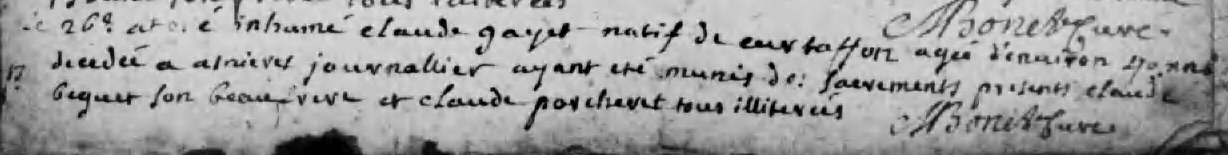 tous illiterés
MBonet Curé
Le 26e at eté inhumé claude gayet natif de curtaffon agé denuiron 40 ans
17 decedé a asnieres journallier ayant eté munis des sacrements presents claude
beguet son beaufrere et claude porcheret tous illiterés
MBonet Curé